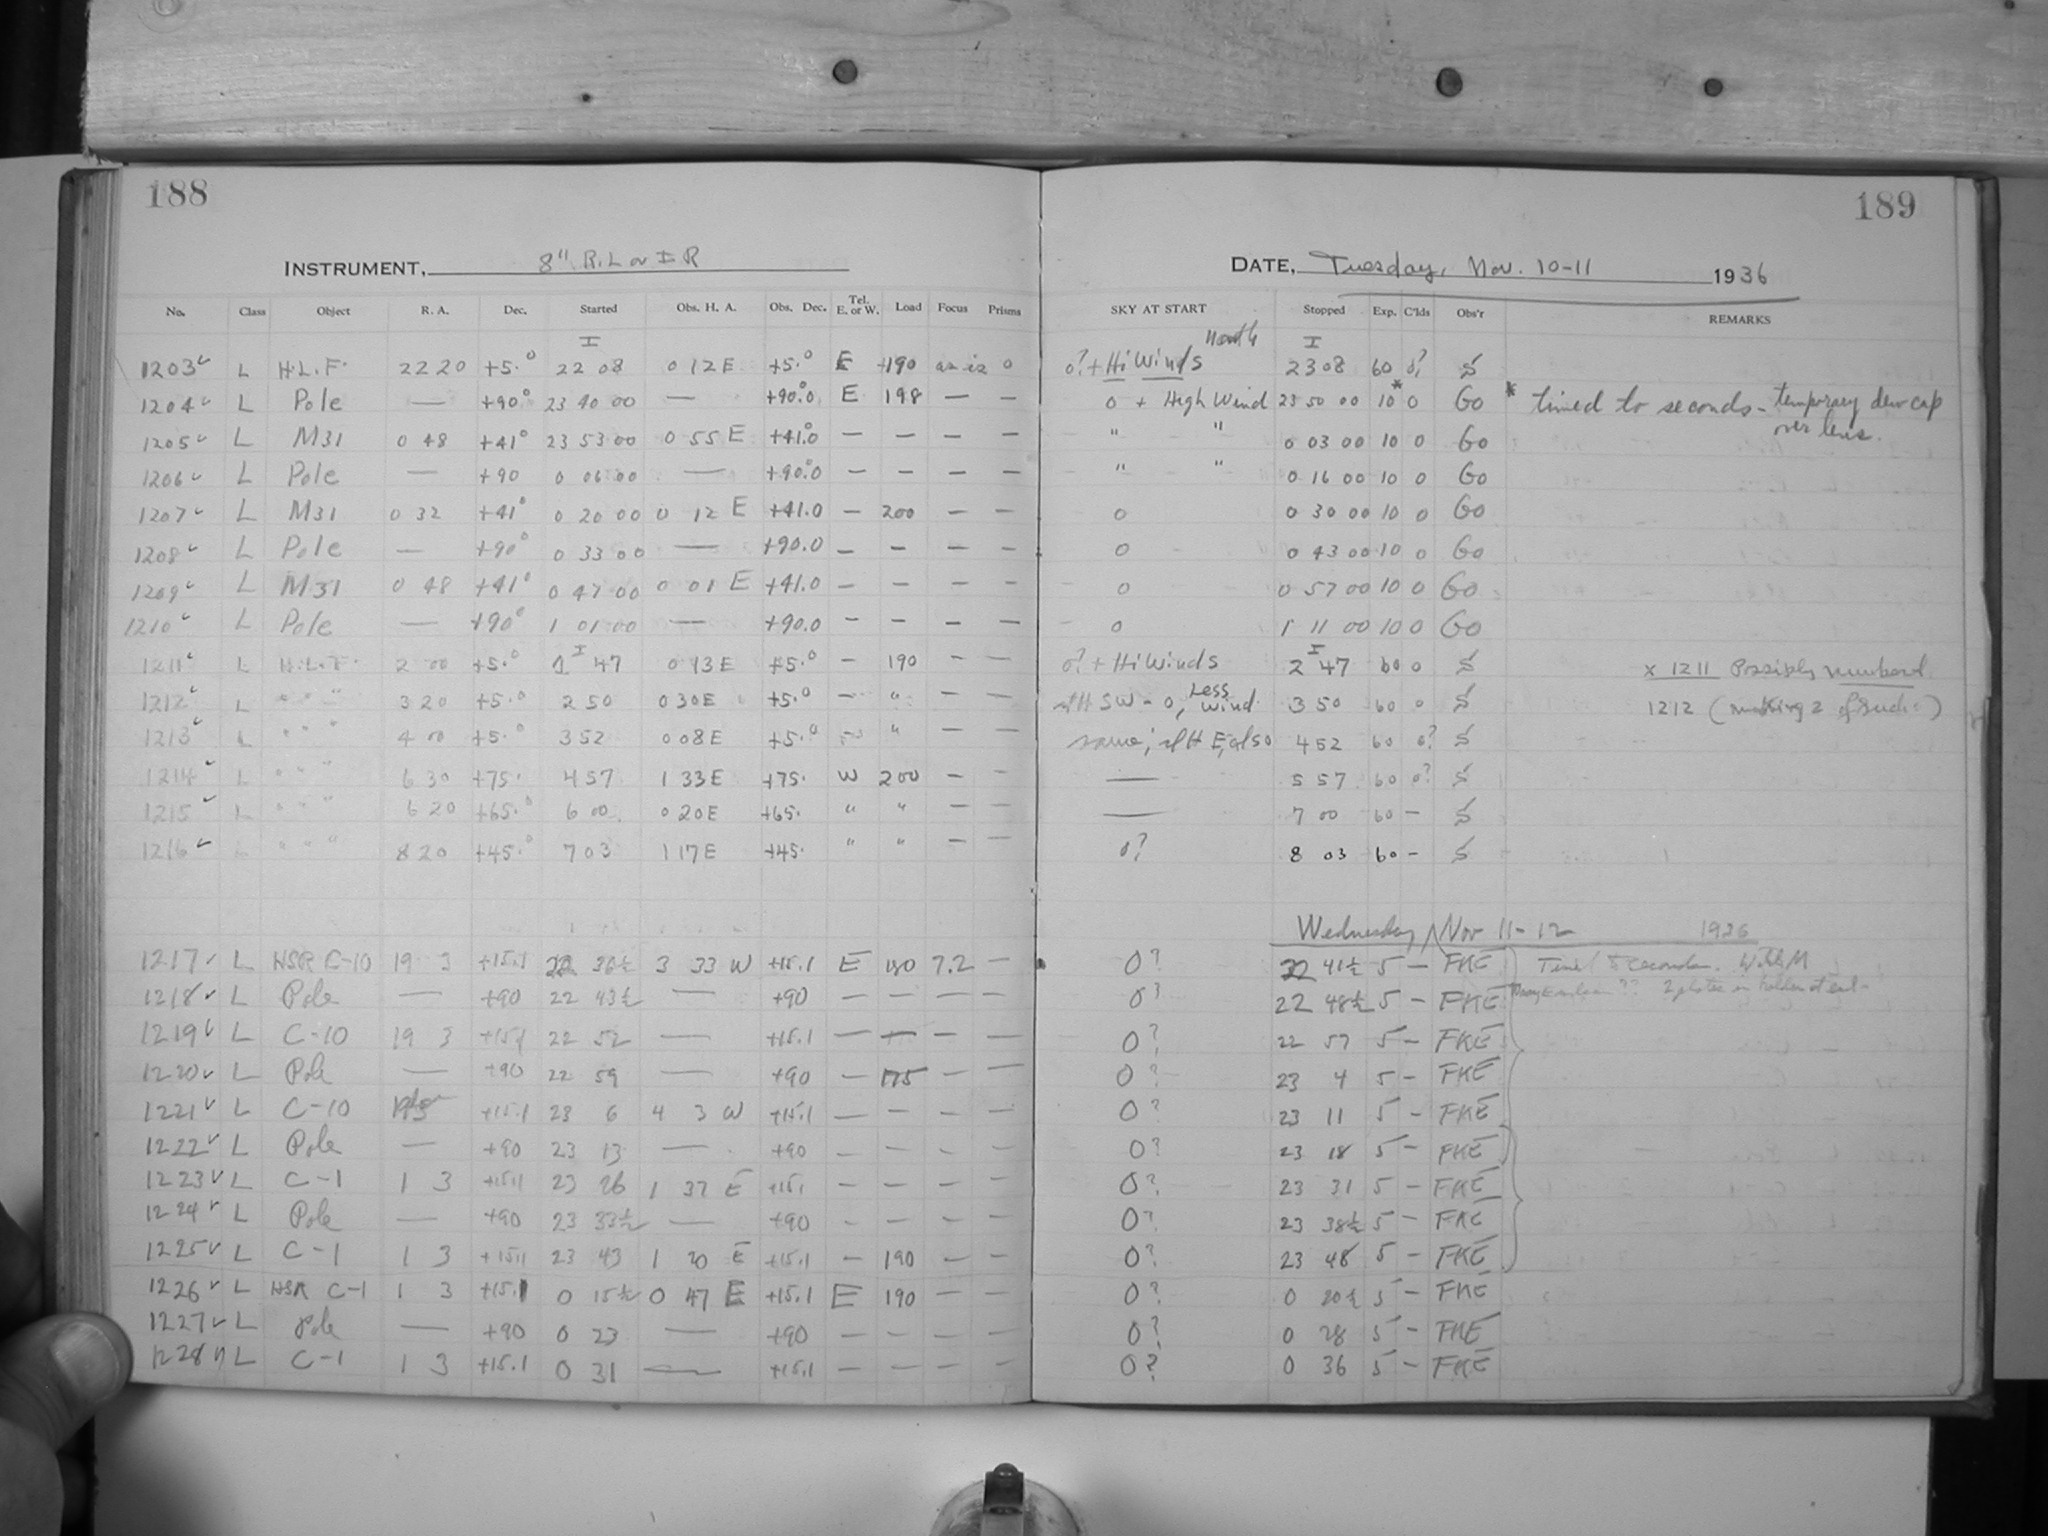 188
189
INSTRUMENT, 8" R.L or I R
DATE, Tuesday, Nov. 10-11 1936
No. Class Object R. A. Dec. Started Obs. H. A. Obs. Dec. Tel. E. or W. Load Focus Prisms SKY AT START Stopped Exp. C'lds Obs'r REMARKS
1203 L H.L.F. 22 20 +5.° 22 08 0 12 E +5.° E 190 as is 0 0? + Hi Winds North 23 08 60 0? S
1204 L Pole — +90° 23 40 00 — +90.0 E 198 — — 0 + High Wind 23 50 00 10* 0 Go * timed to seconds - temporary dew cap over lens.
1205 L M31 0 48 +41° 23 53 00 0 55 E +41.0 — — — — " " 0 03 00 10 0 Go
1206 L Pole — +90 0 06 00 — +90.0 — — — — " " 0 16 00 10 0 Go
1207 L M31 0 32 +41° 0 20 00 0 12 E +41.0 — 200 — — 0 0 30 00 10 0 Go
1208 L Pole — +90° 0 33 00 — +90.0 — — — — 0 0 43 00 10 0 Go
1209 L M31 0 48 +41° 0 47 00 0 01 E +41.0 — — — — 0 0 57 00 10 0 Go
1210 L Pole — +90° 1 01 00 — +90.0 — — — — 0 1 11 00 10 0 Go
1211 L H.L.F. 2 00 +5.° 1 47 0 13 E +5.° — 190 — — 0? + Hi Winds 2 47 60 0 S x 1211 Possibly numbered
1212 L " " " 3 20 +5.° 2 50 0 30 E +5.° — " — — SW - 0, Less Wind 3 50 60 0 S 1212 (making 2 of such)
1213 L " " " 4 00 +5.° 3 52 0 08 E +5.° — " — — same; E, also 4 52 60 0? S
1214 L " " " 6 30 +75. 4 57 1 33 E +75. W 200 — — — 5 57 60 0? S
1215 L " " " 6 20 +65.° 6 00 0 20 E +65. " " — — — 7 00 60 — S
1216 L " " " 8 20 +45.° 7 03 1 17 E +45. " " — — 0? 8 03 60 — S
Wednesday, Nov 11-12 1936
1217 L HSR C-10 19 3 +15.1 22 36½ 3 33 W +15.1 E 190 7.2 — 0? 22 41½ 5 — FKE
1218 L Pole — +90 22 43½ — +90 — — — — 0? 22 48½ 5 — FKE 2 plates in holder at end
1219 L C-10 19 3 +15.1 22 52 — +15.1 — — — — 0? 22 57 5 — FKE
1220 L Pole — +90 22 59 — +90 — 175 — — 0? 23 4 5 — FKE
1221 L C-10 19 3 +15.1 23 6 4 3 W +15.1 — — — — 0? 23 11 5 — FKE
1222 L Pole — +90 23 13 — +90 — — — — 0? 23 18 5 — FKE
1223 L C-1 1 3 +15.1 23 26 1 37 E +15.1 — — — — 0? 23 31 5 — FKE
1224 L Pole — +90 23 33½ — +90 — — — — 0? 23 38½ 5 — FKE
1225 L C-1 1 3 +15.1 23 43 1 20 E +15.1 — 190 — — 0? 23 48 5 — FKE
1226 L HSR C-1 1 3 +15.1 0 15½ 0 47 E +15.1 E 190 — — 0? 0 20½ 5 — FKE
1227 L Pole — +90 0 23 — +90 — — — — 0? 0 28 5 — FKE
1228 L C-1 1 3 +15.1 0 31 — +15.1 — — — — 0? 0 36 5 — FKE